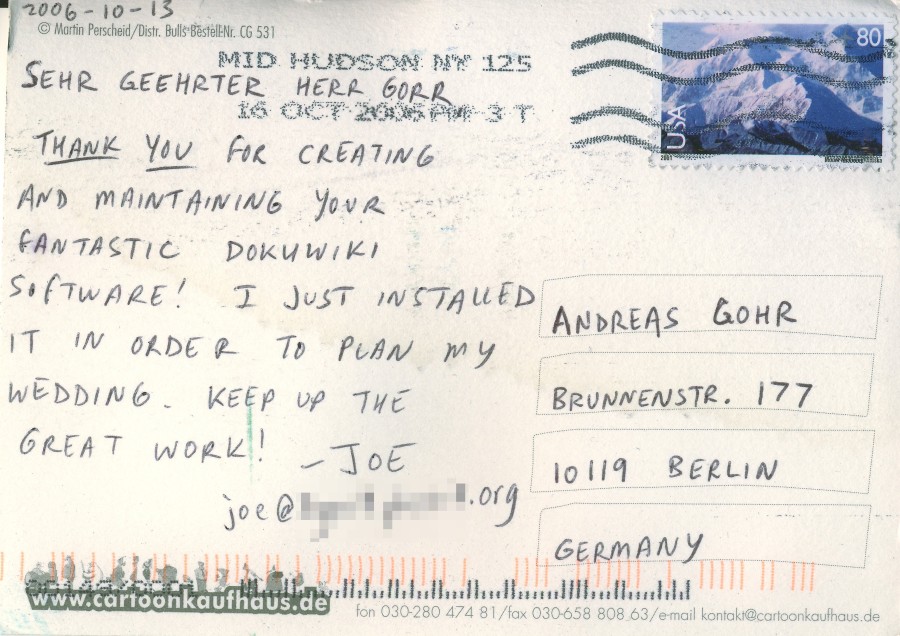 2006-10-13
© Martin Perscheid/Distr. Bulls Bestell-Nr. CG 531
MID HUDSON NY 125
16 OCT 2006 PM 3 T
80
USA
2001
SEHR GEEHRTER HERR GORR
THANK YOU FOR CREATING
AND MAINTAINING YOUR
FANTASTIC DOKUWIKI
SOFTWARE! I JUST INSTALLED
IT IN ORDER TO PLAN MY
WEDDING. KEEP UP THE
GREAT WORK!
– JOE
joe@ .org
ANDREAS GOHR
BRUNNENSTR. 177
10119 BERLIN
GERMANY
www.cartoonkaufhaus.de
fon 030-280 474 81/fax 030-658 808 63/e-mail kontakt@cartoonkaufhaus.de